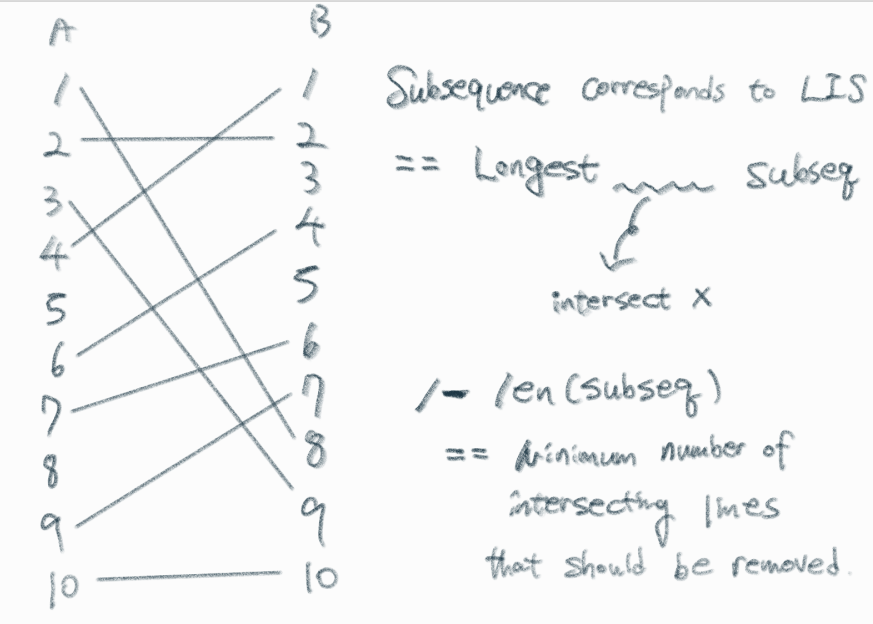 A B
1 1
2 2
3 3
4 4
5 5
6 6
7 7
8 8
9 9
10 10
Subsequence corresponds to LIS
== Longest subseq
intersect X
1 - len(subseq)
== Minimum number of
intersecting lines
that should be removed.